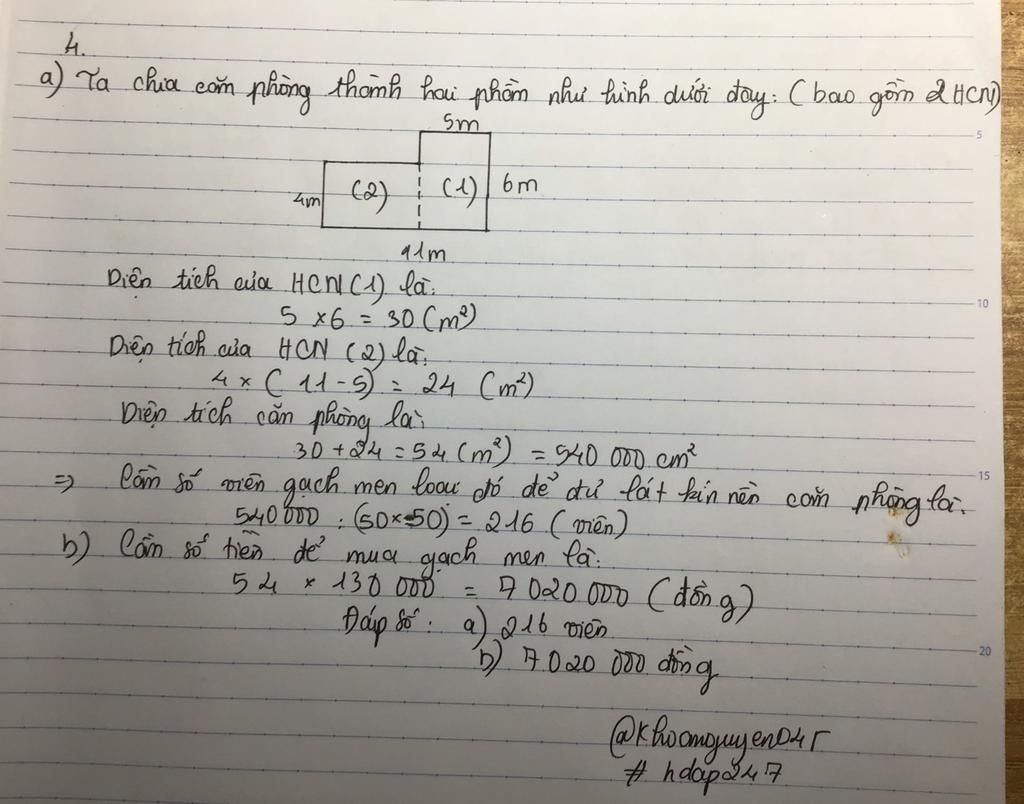 4.
a) Ta chia căn phòng thành hai phần như hình dưới đây: (bao gồm 2 HCN)
5m
4m (2) (1) 6m
11m
Diện tích của HCN (1) là:
5 × 6 = 30 (m²)
Diện tích của HCN (2) là:
4 × ( 11 - 5) = 24 (m²)
Diện tích căn phòng là:
30 + 24 = 54 (m²) = 540 000 cm²
=> Cần số viên gạch men loại đó để đủ lát kín nền căn phòng là:
540 000 : (50 × 50) = 216 (viên)
b) Cần số tiền để mua gạch men là:
54 × 130 000 = 7 020 000 (đồng)
Đáp số: a) 216 viên
b) 7 020 000 đồng
@khoanguyen04r
# hdap247
5
10
15
20